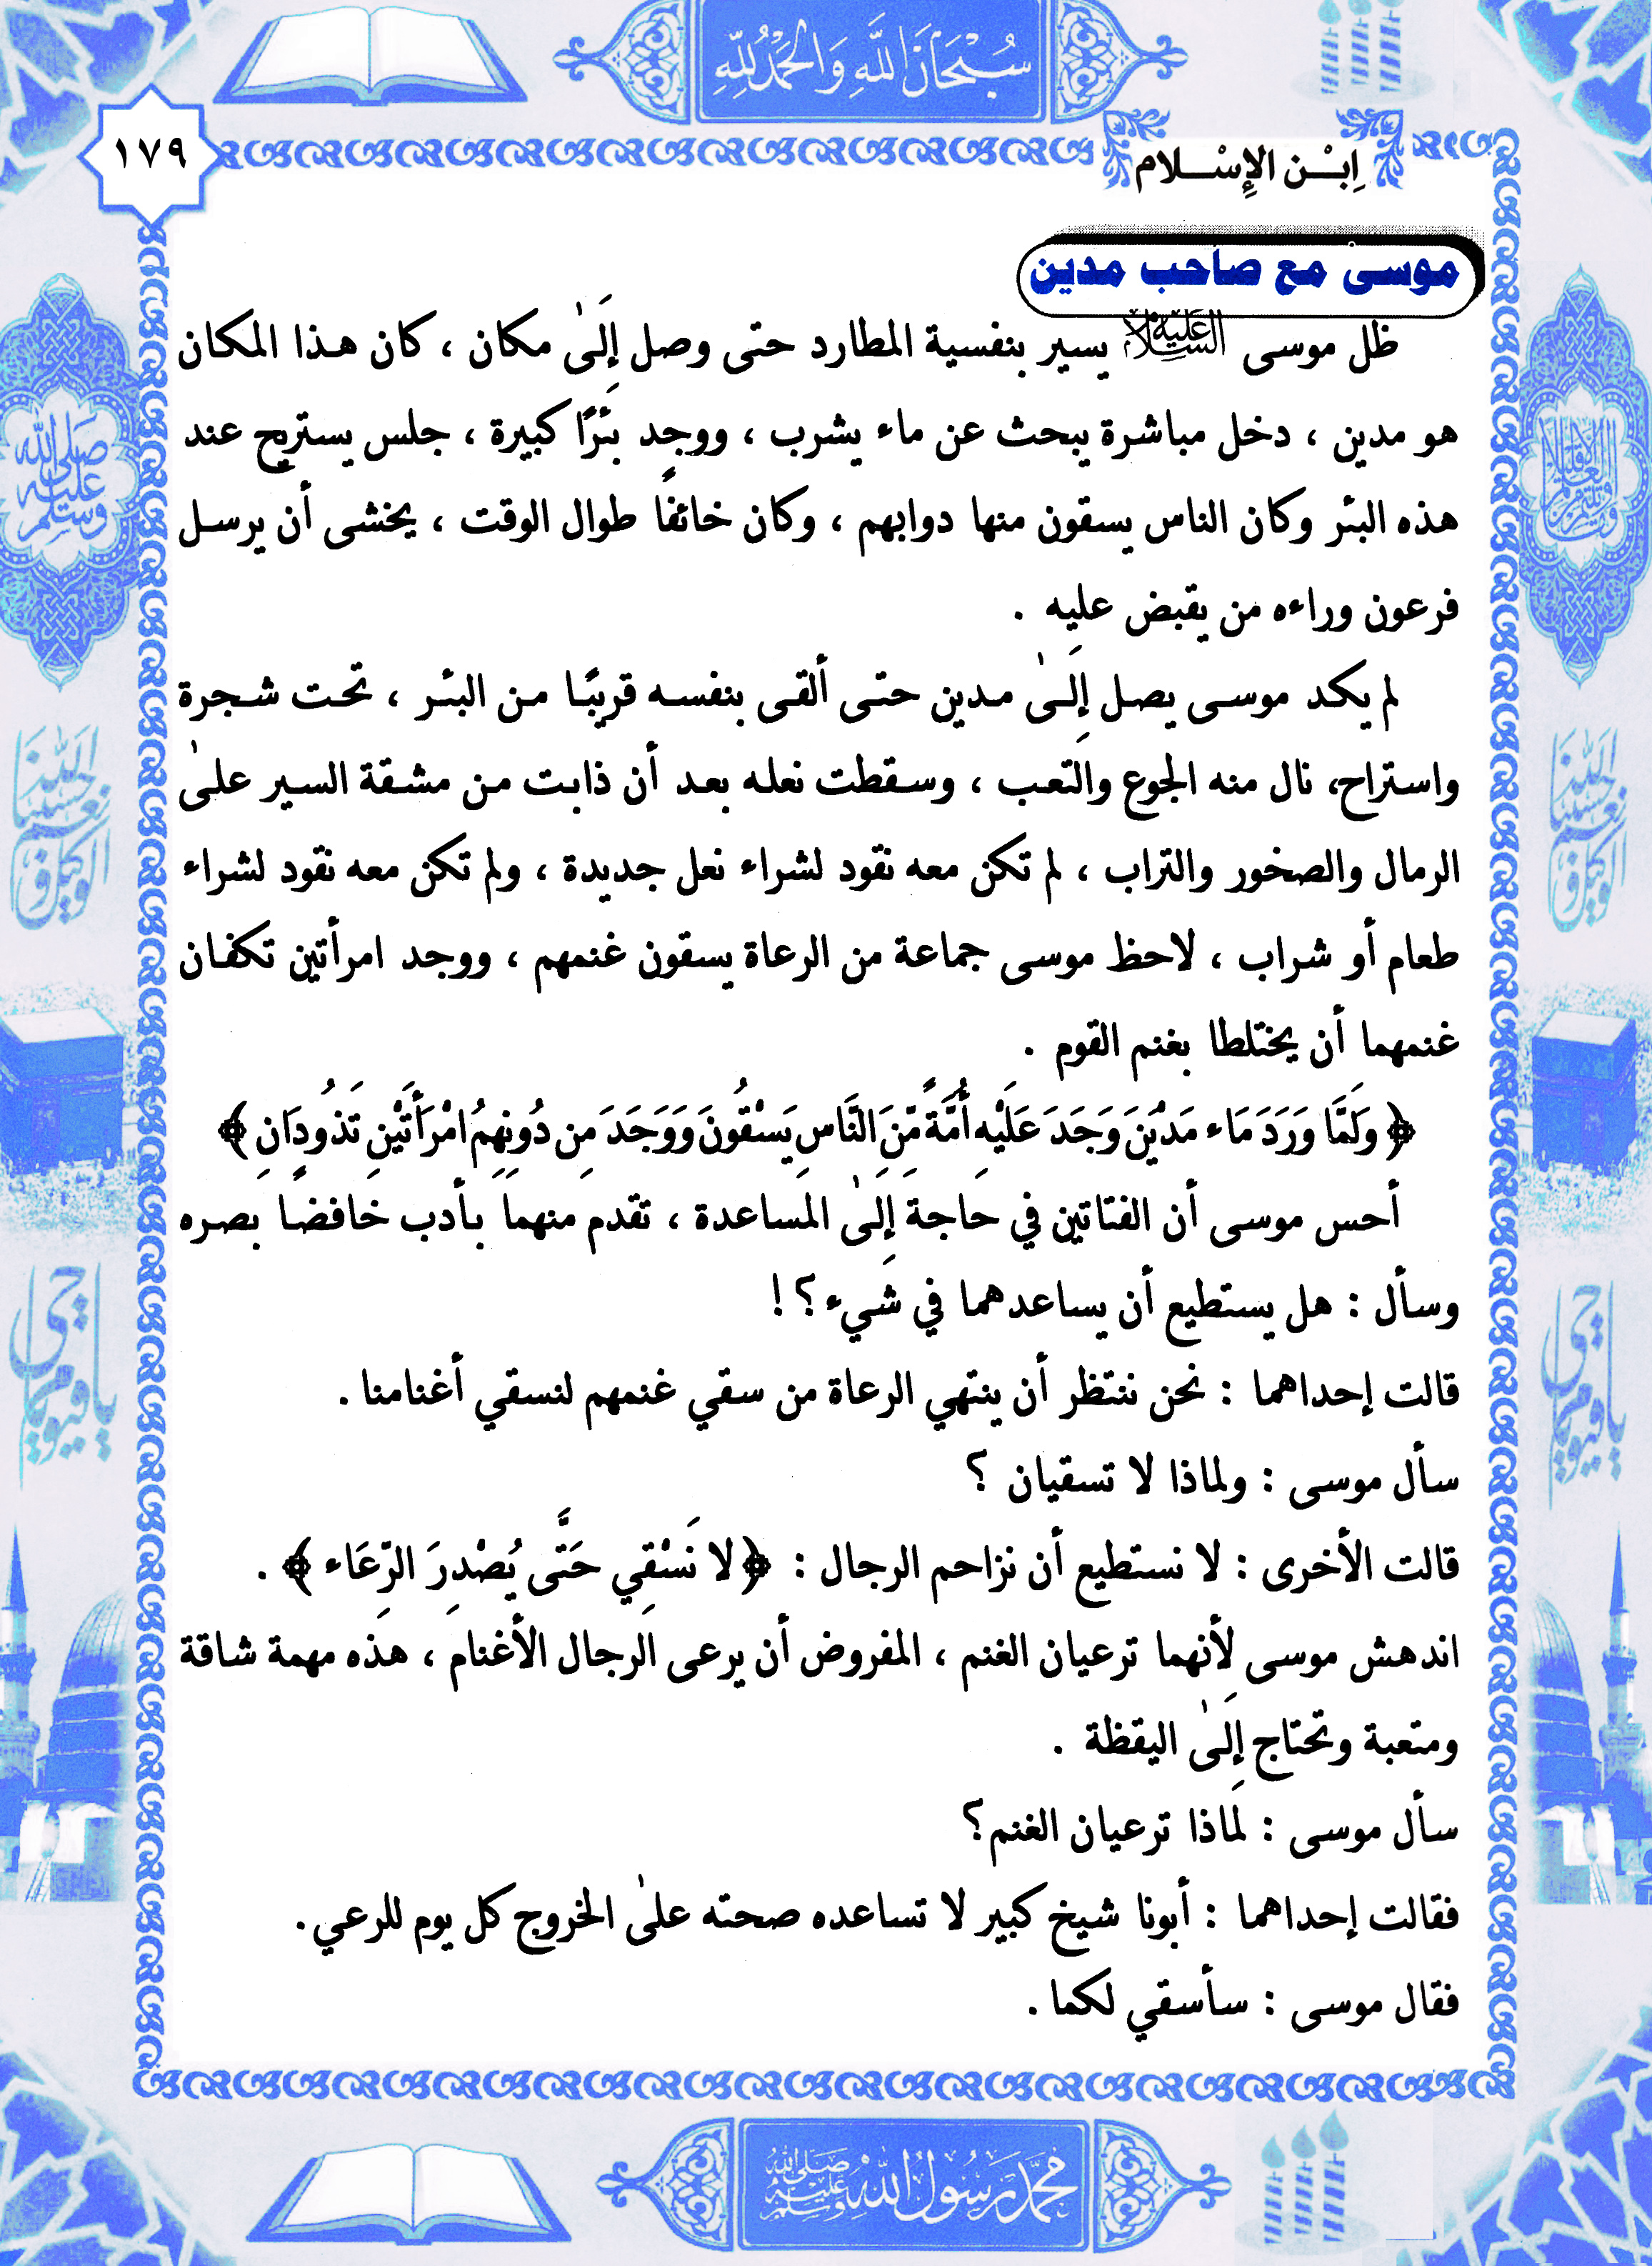 سُبْحَانَ اللَّهِ وَالْحَمْدُ لِلَّهِ
١٧٩
اِبْـن الإِسْـلام
موسىٰ مع صاحب مدين
ظل موسى عليه السلام يسير بنفسية المطارد حتى وصل إِلَىٰ مكان ، كان هـذا المكان
هو مدين ، دخل مباشرة يبحث عن ماء يشرب ، ووجد بئرًا كبيرة ، جلس يستريح عند
هذه البئر وكان الناس يسقون منها دوابهم ، وكان خائفًا طوال الوقت ، يخشى أن يرسل
فرعون وراءه من يقبض عليه .
لم يكد موسى يصل إِلَىٰ مدين حتى ألقى بنفسه قريبًا من البئر ، تحت شجرة
واستراح، نال منه الجوع والتعب ، وسقطت نعله بعد أن ذابت من مشقة السير علىٰ
الرمال والصخور والتراب ، لم تكن معه نقود لشراء نعل جديدة ، ولم تكن معه نقود لشراء
طعام أو شراب ، لاحظ موسى جماعة من الرعاة يسقون غنمهم ، ووجد امرأتين تكفان
غنمهما أن يختلطا بغنم القوم .
﴿ وَلَمَّا وَرَدَ مَاء مَدْيَنَ وَجَدَ عَلَيْهِ أُمَّةً مِّنَ النَّاسِ يَسْقُونَ وَوَجَدَ مِن دُونِهِمُ امْرَأَتَيْنِ تَذُودَانِ ﴾
أحس موسى أن الفتاتين في حاجة إِلَىٰ المساعدة ، تقدم منهما بأدب خافضًا بصره
وسأل : هل يستطيع أن يساعدهما في شيء ؟ !
قالت إحداهما : نحن ننتظر أن ينتهي الرعاة من سقي غنمهم لنسقي أغنامنا .
سأل موسى : ولماذا لا تسقيان ؟
قالت الأخرى : لا نستطيع أن نزاحم الرجال : ﴿ لا نَسْقِي حَتَّى يُصْدِرَ الرِّعَاء ﴾ .
اندهش موسى لأنهما ترعيان الغنم ، المفروض أن يرعى الرجال الأغنام ، هذه مهمة شاقة
ومتعبة وتحتاج إِلَىٰ اليقظة .
سأل موسى : لماذا ترعيان الغنم؟
فقالت إحداهما : أبونا شيخ كبير لا تساعده صحته علىٰ الخروج كل يوم للرعي .
فقال موسى : سأسقي لكما .
صلى الله
عليه
وسلم
حسبنا الله
ونعم
الوكيل
يا حي
يا قيوم
محمد رسول الله صلى الله عليه وسلم